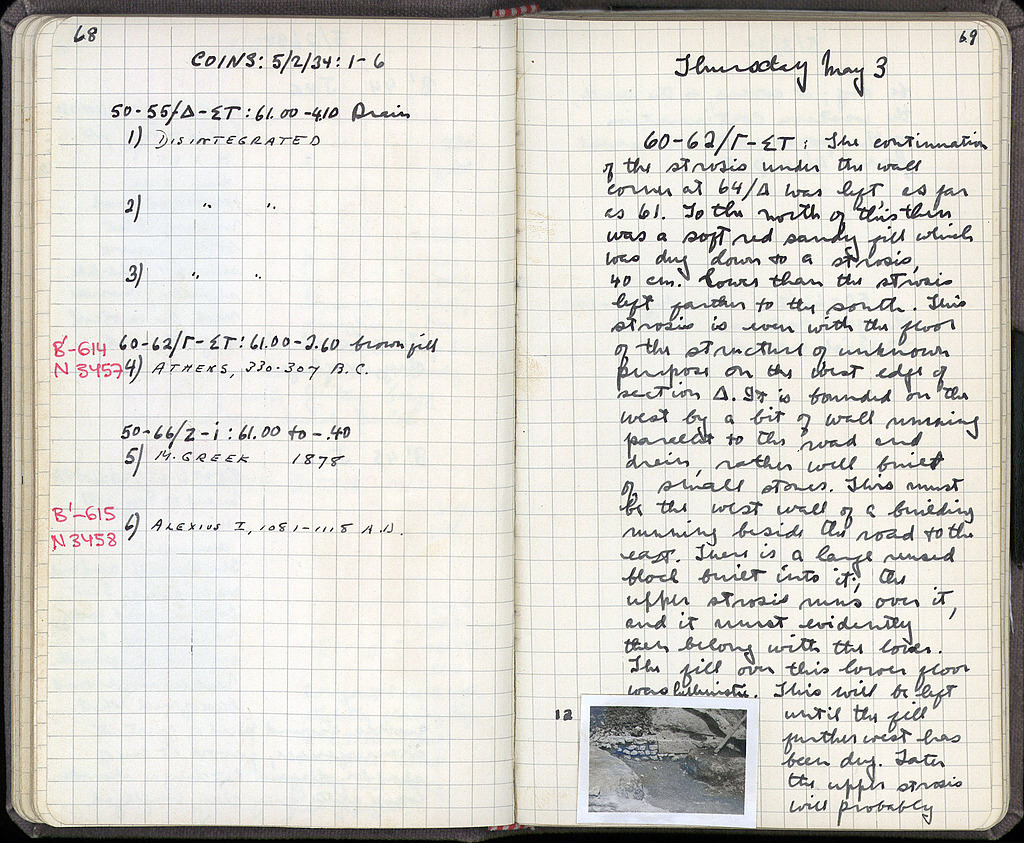 68
COINS: 5/2/34: 1-6
50-55/Δ-ΣΤ: 61.00 -4.10 Drain
1) DISINTEGRATED
2) " "
3) " "
B'-614 60-62/Γ-ΣΤ: 61.00-2.60 brown fill
N 3457 4) ATHENS, 330-307 B.C.
50-66/Z-i: 61.00 to -.40
5) M. GREEK 1878
B'-615
N 3458 6) ALEXIUS I, 1081-1118 A.D.
69
Thursday May 3
60-62/Γ-ΣΤ: The continuation
of the strosis under the wall
corner at 64/Δ was left, as far
as 61. To the north of this there
was a soft red sandy fill which
was dug down to a strosis,
40 cm. lower than the strosis
left farther to the south. This
strosis is even with the floor
of the structure of unknown
purpose on the west edge of
section Δ. It is bounded on the
west by a bit of wall running
parallel to the road and
drain, rather well built
of small stones. This must
be the west wall of a building
running beside the road to the
east. There is a large reused
block built into it; the
upper strosis runs over it,
and it must evidently
then belong with the lower.
The fill over this lower floor
was hellenistic. This will be left
12
until the fill
further west has
been dug. Later
the upper strosis
will probably